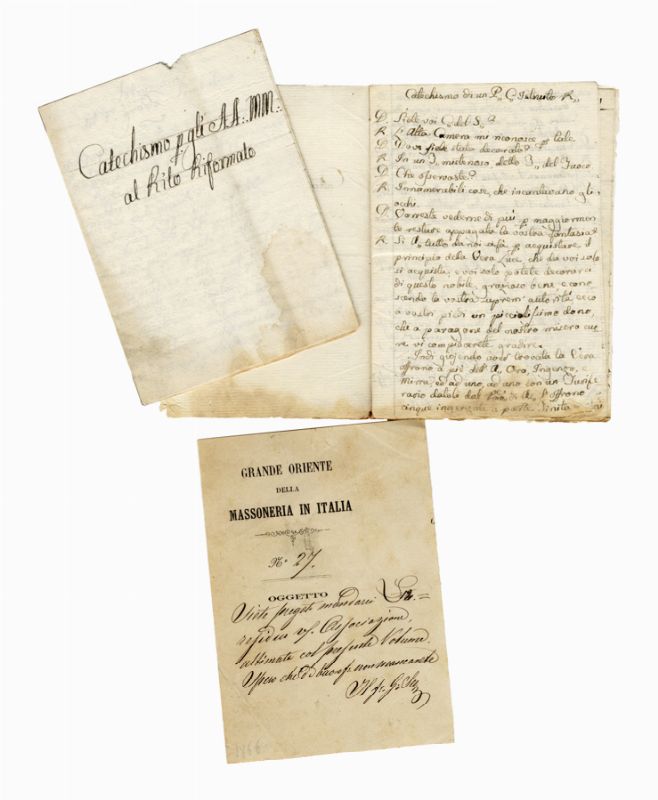 Catechismo p. gli AA:. MM:.
al Rito Riformato
Catechismo di un P., C. Istruito R.,
D. Siete voi C. del S.?
R. L'Alta Camera mi riconosce p. tale
D. Dove siete stato decorato?
R. In un J., misterioso detto J., del Fuoco
D. Che osservaste?
R. Innumerabili cose, che incantavano gli
occhi.
D. Vorreste vederne di più p. maggiormen
te restare appagata la vostra fantasia?
R. Si
tutto da noi si fà p. acquistare, il
principio della Vera Luce, che da voi solo
si acquista, e voi solo potete decorara
di questo nobile, grazioso bene, e cono
scendo la vostra suprem' autorità ecco
a vostri piedi un picciolissimo dono,
che a paragone del nostro misero cuo
re vi compiacerete gradire.
Indi
trovata la Vera
offrano a piè dell' A., Oro, Ingenzo, e
mirra, ed ad uno, ad uno con un Turife
rario
offrono
cinque
GRANDE ORIENTE
DELLA
MASSONERIA IN ITALIA
N° 27.
OGGETTO
Siete pregato mandarci
Associazione
ultimata col presente Volume.
Spero che
non mancarete
Il fr.
1866